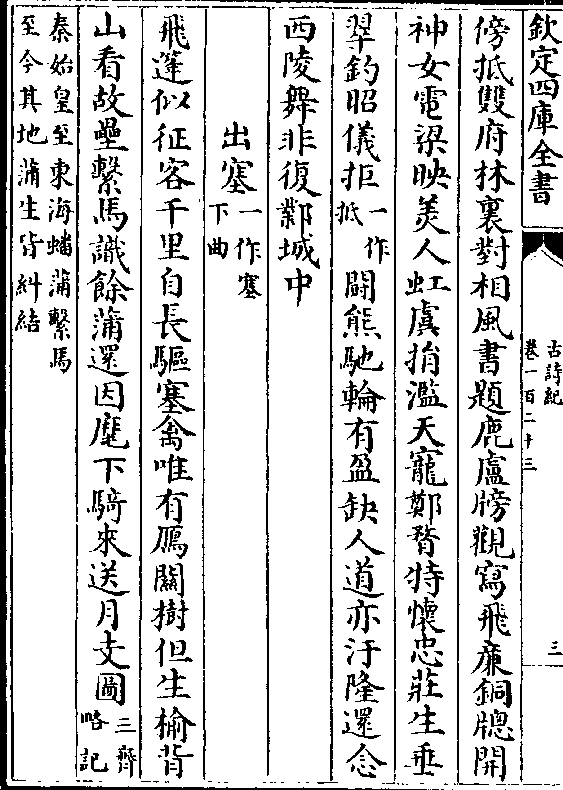 欽定四庫全書
古詩紀
卷一百二十三
三
傍抵雙府林裏對相風書題鹿盧牓觀寫飛廉銅牕開
神女電梁映美人虹虞捐濫天寵鄭瞀特懷忠莊生垂
翠釣昭儀拒一作抵鬭熊馳輪有盈缺人道亦汙隆還念
西陵舞非復鄴城中
出塞一作塞下曲
飛蓬似征客千里自長驅塞禽唯有鴈關樹但生榆背
山看故壘繫馬識餘蒲還因麾下騎來送月支圖三齊略記
秦始皇至東海蟠蒲繫馬
至今其地蒲生皆糾結